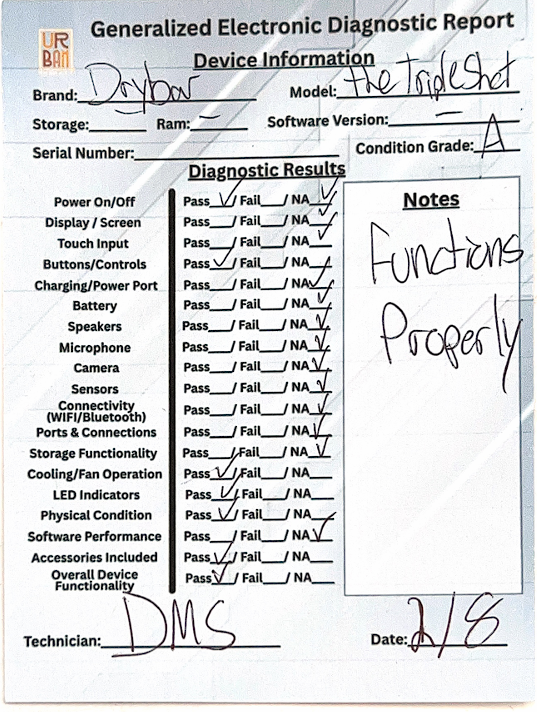 UR
BAN
Generalized Electronic Diagnostic Report
Device Information
Brand: Drybar Model: the TripleShot
Storage: — Ram: — Software Version: —
Serial Number: Condition Grade: A
Diagnostic Results
Power On/Off Pass ✓/ Fail / NA
Display / Screen Pass / Fail / NA ✓
Touch Input Pass / Fail / NA ✓
Buttons/Controls Pass ✓/ Fail / NA
Charging/Power Port Pass / Fail / NA ✓
Battery Pass / Fail / NA ✓
Speakers Pass / Fail / NA ✓
Microphone Pass / Fail / NA ✓
Camera Pass / Fail / NA ✓
Sensors Pass / Fail / NA ✓
Connectivity
(WIFI/Bluetooth) Pass / Fail / NA ✓
Ports & Connections Pass / Fail / NA ✓
Storage Functionality Pass / Fail / NA ✓
Cooling/Fan Operation Pass ✓/ Fail / NA
LED Indicators Pass ✓/ Fail / NA
Physical Condition Pass ✓/ Fail / NA
Software Performance Pass / Fail / NA ✓
Accessories Included Pass ✓/ Fail / NA
Overall Device
Functionality Pass ✓/ Fail / NA
Notes
Functions
Properly
Technician: DMS Date: 2/8